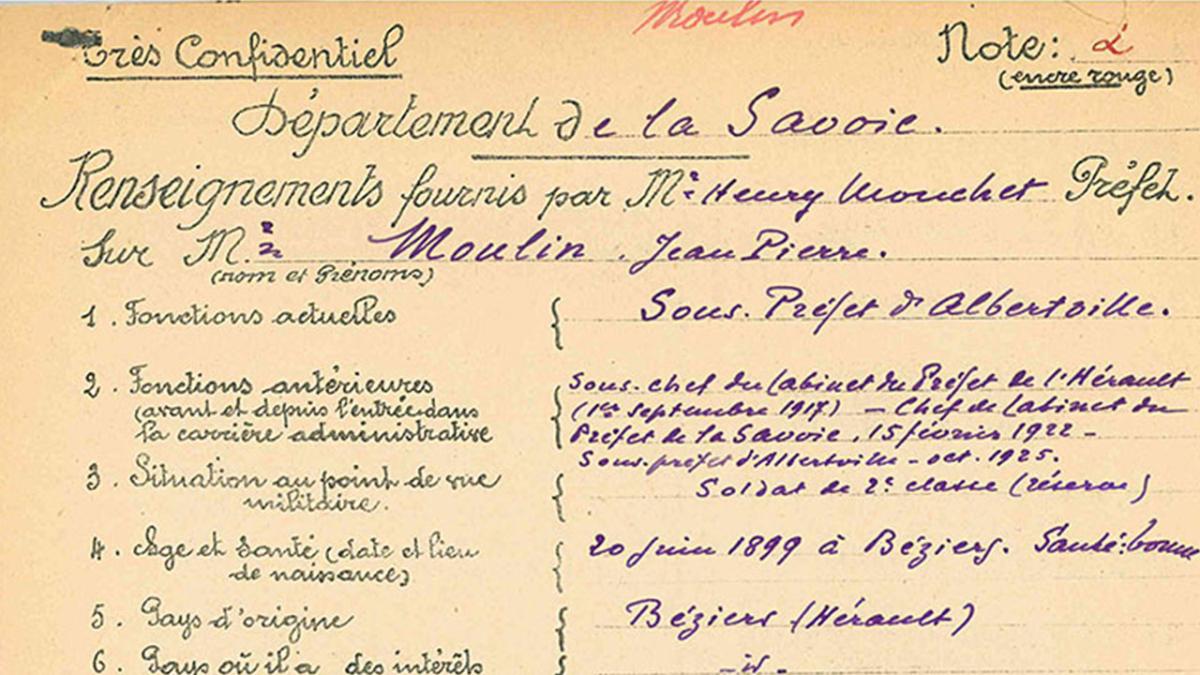 Moulin
Très Confidentiel
Note: 2
(encre rouge)
Département de la Savoie.
Renseignements fournis par Mr Henry Mouchet Préfet.
Sur M.r Moulin. Jean Pierre.
(nom et Prénoms)
1. Fonctions actuelles
Sous-Préfet d'Albertville.
2. Fonctions antérieures
(avant et depuis l'entrée dans
la carrière administrative
Sous-chef du Cabinet du Préfet de l'Hérault
(1er Septembre 1917) - Chef de Cabinet du
Préfet de la Savoie, 15 février 1922 -
Sous-préfet d'Albertville - oct. 1925.
3. Situation au point de vue
militaire.
Soldat de 2e classe (réserve)
4. Age et Santé (date et lieu
de naissance)
20 Juin 1899 à Béziers. Santé: bonne
5. Pays d'origine
Béziers (Hérault)
6. Pays où il a des intérêts
- id -